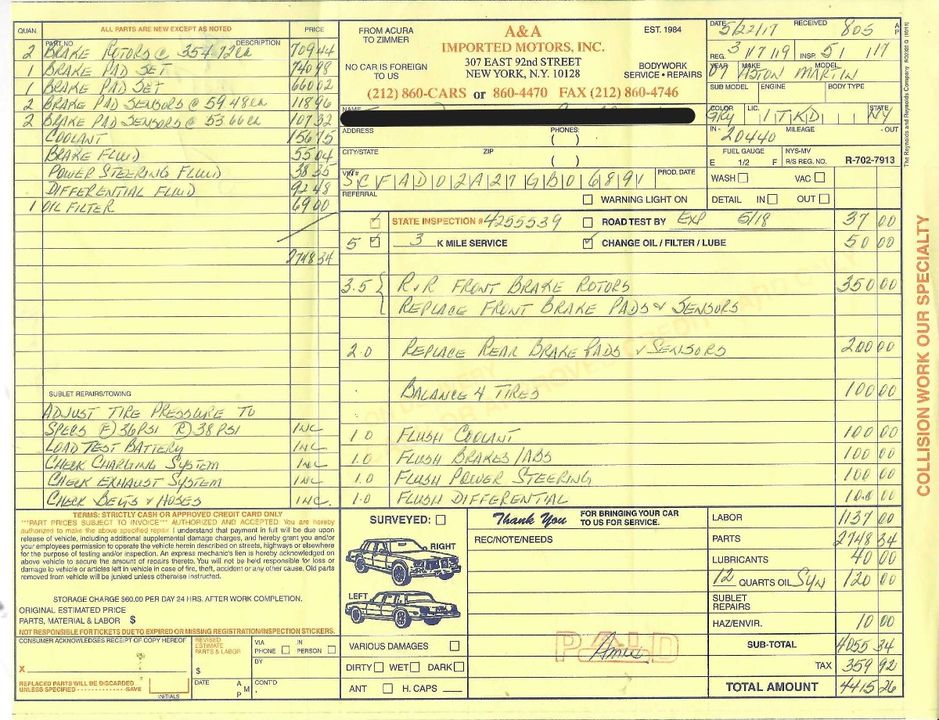 QUAN. ALL PARTS ARE NEW EXCEPT AS NOTED PRICE
PART NO. DESCRIPTION
2 BRAKE ROTORS @ 354.72 EA 709 44
1 BRAKE PAD SET 740 98
1 BRAKE PAD SET 660 02
2 BRAKE PAD SENSORS @ 59 48 EA 118 96
2 BRAKE PAD SENSORS @ 53 66 EA 107 32
COOLANT 156 75
BRAKE FLUID 55 04
POWER STEERING FLUID 38 35
DIFFERENTIAL FLUID 92 48
1 OIL FILTER 69 00
2748 34
SUBLET REPAIRS/TOWING
ADJUST TIRE PRESSURE TO
SPECS F) 36 PSI R) 38 PSI INC
LOAD TEST BATTERY INC
CHECK CHARGING SYSTEM INC
CHECK EXHAUST SYSTEM INC
CHECK BELTS & HOSES INC.
FROM ACURA
TO ZIMMER
NO CAR IS FOREIGN
TO US
A&A
IMPORTED MOTORS, INC.
307 EAST 92nd STREET
NEW YORK, N.Y. 10128
EST. 1984
BODYWORK
SERVICE • REPAIRS
(212) 860-CARS or 860-4470 FAX (212) 860-4746
DATE 5/22/17 RECEIVED 805 A P
REG. 3/17/19 INSP. 5/ /17
YR MAKE MODEL
07 ASTON MARTIN
SUB MODEL ENGINE BODY TYPE
COLOR LIC. STATE
GRY 1TKD NY
IN - 20440 MILEAGE - OUT
NAME
ADDRESS PHONES:
( )
CITY/STATE ZIP
( )
FUEL GAUGE NYS-MV
E 1/2 F R/S REG. NO. R-702-7913
VIN# SCFAD02A27GB06891 PROD. DATE
WASH VAC
REFERRAL
WARNING LIGHT ON DETAIL IN OUT
STATE INSPECTION # 4255539 ROAD TEST BY EXP 5/18 37 00
5 3 K MILE SERVICE CHANGE OIL / FILTER / LUBE 50 00
3.5 R & R FRONT BRAKE ROTORS 350 00
REPLACE FRONT BRAKE PADS & SENSORS
2.0 REPLACE REAR BRAKE PADS & SENSORS 200 00
BALANCE 4 TIRES 100 00
1.0 FLUSH COOLANT 100 00
1.0 FLUSH BRAKES/ABS 100 00
1.0 FLUSH POWER STEERING 100 00
1.0 FLUSH DIFFERENTIAL 100 00
COLLISION WORK OUR SPECIALTY
TERMS: STRICTLY CASH OR APPROVED CREDIT CARD ONLY
***PART PRICES SUBJECT TO INVOICE*** AUTHORIZED AND ACCEPTED You are hereby
authorized to make the above specified repair. I understand that payment in full will be due upon
release of vehicle, including additional supplemental damage charges, and hereby grant you and/or
your employees permission to operate the vehicle herein described on streets, highways or elsewhere
for the purpose of testing and/or inspection. An express mechanic's lien is hereby acknowledged on
above vehicle to secure the amount of repairs thereto. You will not be held responsible for loss or
damage to vehicle or articles left in vehicle in case of fire, theft, accident or any other cause. Old parts
removed from vehicle will be junked unless otherwise instructed.
STORAGE CHARGE $60.00 PER DAY 24 HRS. AFTER WORK COMPLETION.
ORIGINAL ESTIMATED PRICE
PARTS, MATERIAL & LABOR $
NOT RESPONSIBLE FOR TICKETS DUE TO EXPIRED OR MISSING REGISTRATION/INSPECTION STICKERS.
CONSUMER ACKNOWLEDGES RECEIPT OF COPY HEREOF
X
REPLACED PARTS WILL BE DISCARDED
UNLESS SPECIFIED SAVE
INITIALS
REVISED
ESTIMATE
PARTS & LABOR
$
DATE A M P
VIA PHONE IN PERSON
BY
CONT'D
SURVEYED:
RIGHT
LEFT
VARIOUS DAMAGES
DIRTY WET DARK
ANT H. CAPS
Thank You FOR BRINGING YOUR CAR
TO US FOR SERVICE.
REC/NOTE/NEEDS
PAID
LABOR 1137 00
PARTS 2748 34
LUBRICANTS 40 00
12 QUARTS OIL SYN 120 00
SUBLET
REPAIRS
HAZ/ENVIR. 10 00
SUB-TOTAL 4055 34
TAX 359 92
TOTAL AMOUNT 4415 26